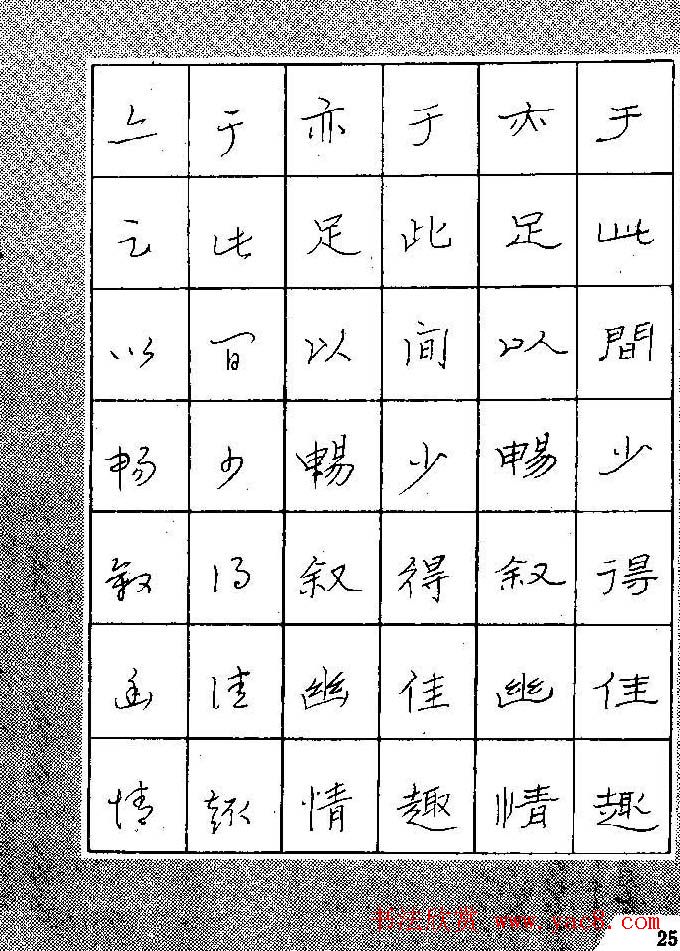 于此間少得佳趣
亦足以暢叙幽情
于此间少得佳趣
亦足以暢叙幽情
于此间少得佳趣
亦足以畅叙幽情
书法欣赏 www.yac8.com
25